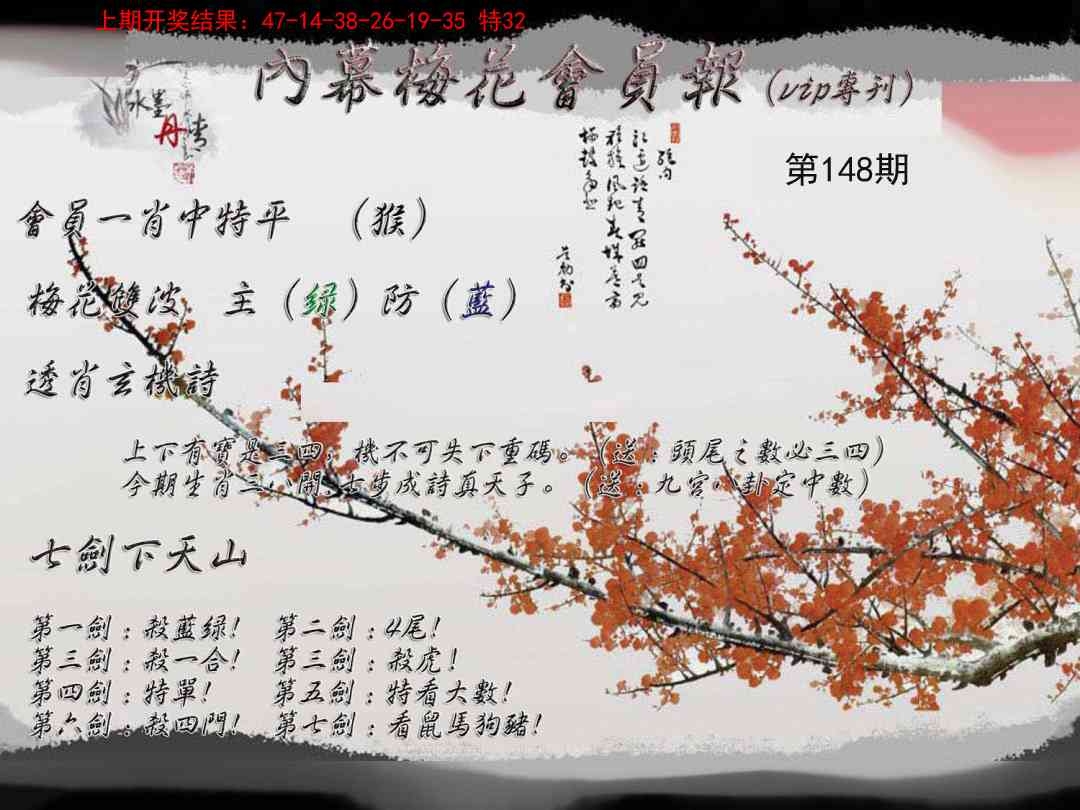 上期开奖结果：47-14-38-26-19-35 特32
內幕梅花會員報（vip專刊）
水墨
丹青
第148期
會員一肖中特平 （猴）
梅花雙波 主（绿）防（藍）
透肖玄機詩
上下有寶是三四，機不可失下重碼。（送：頭尾之數必三四）
今期生肖三八開，七步成詩真天子。（送：九宮八卦定中數）
七劍下天山
第一劍：殺藍绿！ 第二劍：4尾！
第三劍：殺一合！ 第三劍：殺虎！
第四劍：特單！ 第五劍：特看大數！
第六劍：殺四門！ 第七劍：看鼠馬狗豬！